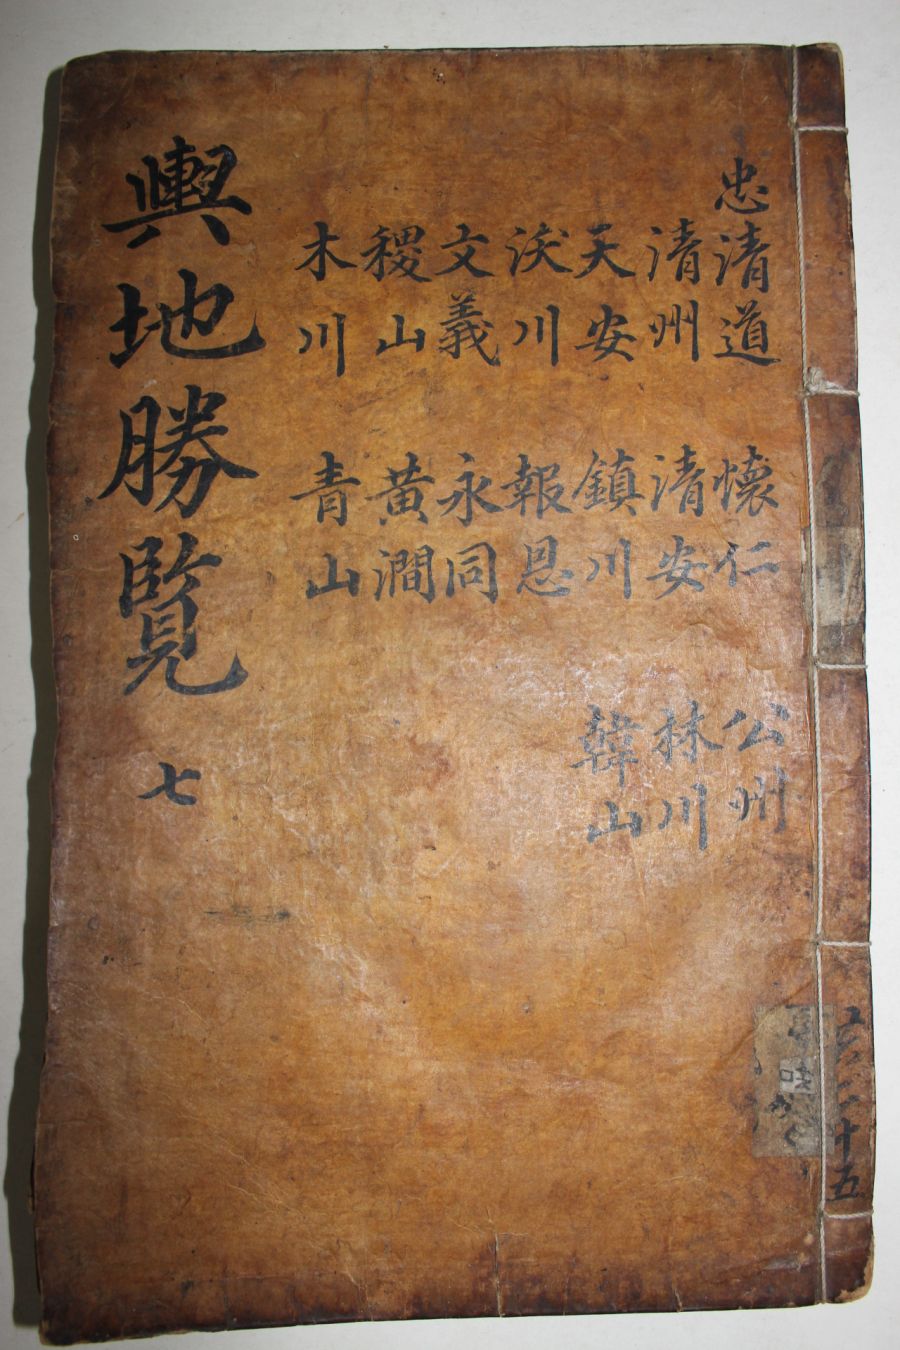 忠清道 懷仁 公州
清州 清安 林川
天安 鎮川 韓山
沃川 報恩
文義 永同
稷山 黃澗
木川 青山
輿地勝覽 七
十五